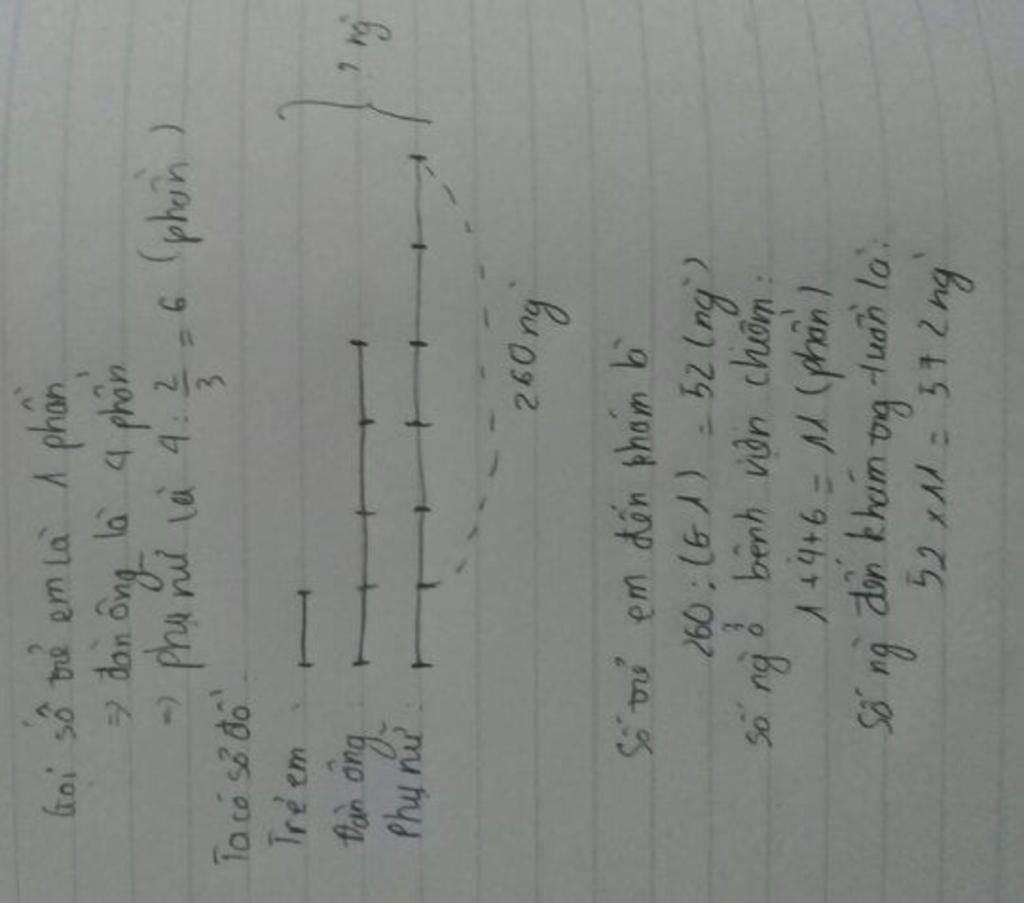 Gọi số trẻ em là 1 phần
=> đàn ông là 4 phần
=> phụ nữ là 4 : 2/3 = 6 (phần)
Ta có sơ đồ
Trẻ em :
Đàn ông :
Phụ nữ :
? ng̀
260 ng̀
Số trẻ em đến phám bì
260 : (6-1) = 52 (ng̀)
Số ng̀ ở bệnh viện chiếm :
1+4+6 = 11 (phần)
Số ng̀ đến khám trog tuần là :
52 x 11 = 572 ng̀